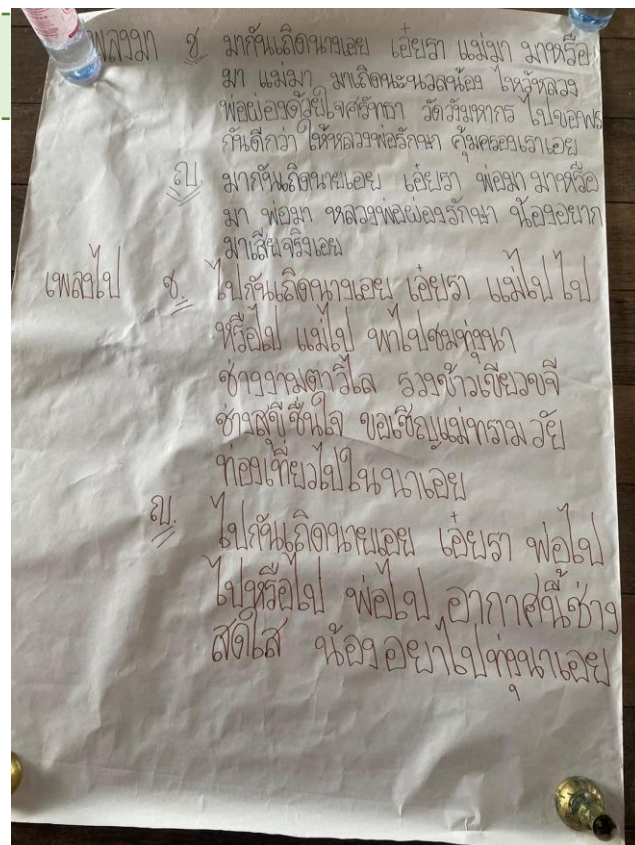 เพลงมา ช. มากันเถิดนางเอย เอ๋ยรา แม่มา มาหรือ
มา แม่มา มาเถิดนะนวลน้อง ไหว้หลวง
พ่อผ่องด้วยใจศรัทธา วัดวังมหากร ไปขอพร
กันดีกว่า ให้หลวงพ่อรักษา คุ้มครองเราเอย
ญ. มากันเถิดนายเอย เอ๋ยรา พ่อมา มาหรือ
มา พ่อมา หลวงพ่อผ่องรักษา น้องอยาก
มาเสียจริงเอย
เพลงไป ช. ไปกันเถิดนางเอย เอ๋ยรา แม่ไป ไป
หรือไป แม่ไป พาไปชมทุ่งนา
ช่างงามตาวิไล รวงข้าวเขียวขจี
ช่างสุขีชื่นใจ ขอเชิญแม่ทรามวัย
ท่องเที่ยวไปในนาเอย
ญ. ไปกันเถิดนายเอย เอ๋ยรา พ่อไป
ไปหรือไป พ่อไป อากาศนี้ช่าง
สดใส น้องอยาไปทุ่งนาเอย